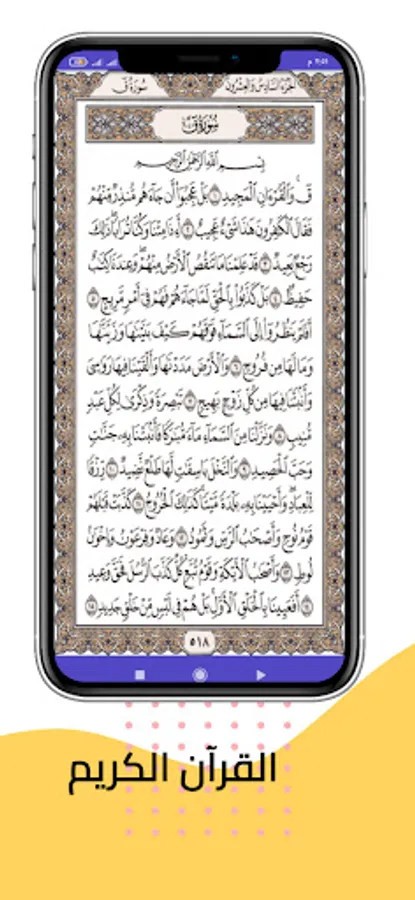 ٩:٤١ م
الجزء السادس والعشرون
سورة ق
سُورَةُ ق
بِسْمِ اللَّهِ الرَّحْمَٰنِ الرَّحِيمِ
قٓ وَالْقُرْءَانِ الْمَجِيدِ ١ بَلْ عَجِبُوٓا۟ أَن جَآءَهُم مُّنذِرٌ مِّنْهُمْ
فَقَالَ الْكَٰفِرُونَ هَٰذَا شَىْءٌ عَجِيبٌ ٢ أَءِذَا مِتْنَا وَكُنَّا تُرَابًا ۖ ذَٰلِكَ
رَجْعٌۢ بَعِيدٌ ٣ قَدْ عَلِمْنَا مَا تَنقُصُ الْأَرْضُ مِنْهُمْ ۖ وَعِندَنَا كِتَٰبٌ
حَفِيظٌۢ ٤ بَلْ كَذَّبُوا۟ بِالْحَقِّ لَمَّا جَآءَهُمْ فَهُمْ فِىٓ أَمْرٍ مَّرِيجٍ ٥
أَفَلَمْ يَنظُرُوٓا۟ إِلَى السَّمَآءِ فَوْقَهُمْ كَيْفَ بَنَيْنَٰهَا وَزَيَّنَّٰهَا
وَمَا لَهَا مِن فُرُوجٍ ٦ وَالْأَرْضَ مَدَدْنَٰهَا وَأَلْقَيْنَا فِيهَا رَوَٰسِىَ
وَأَنۢبَتْنَا فِيهَا مِن كُلِّ زَوْجٍۭ بَهِيجٍ ٧ تَبْصِرَةً وَذِكْرَىٰ لِكُلِّ عَبْدٍ
مُّنِيبٍ ٨ وَنَزَّلْنَا مِنَ السَّمَآءِ مَآءً مُّبَٰرَكًا فَأَنۢبَتْنَا بِهِۦ جَنَّٰتٍ
وَحَبَّ الْحَصِيدِ ٩ وَالنَّخْلَ بَاسِقَٰتٍ لَّهَا طَلْعٌ نَّضِيدٌ ١٠ رِّزْقًا
لِّلْعِبَادِ ۖ وَأَحْيَيْنَا بِهِۦ بَلْدَةً مَّيْتًا ۚ كَذَٰلِكَ الْخُرُوجُ ١١ كَذَّبَتْ قَبْلَهُمْ
قَوْمُ نُوحٍ وَأَصْحَٰبُ الرَّسِّ وَثَمُودُ ١٢ وَعَادٌ وَفِرْعَوْنُ وَإِخْوَٰنُ
لُوطٍ ١٣ وَأَصْحَٰبُ الْأَيْكَةِ وَقَوْمُ تُبَّعٍ ۚ كُلٌّ كَذَّبَ الرُّسُلَ فَحَقَّ وَعِيدِ
١٤ أَفَعَيِينَا بِالْخَلْقِ الْأَوَّلِ ۚ بَلْ هُمْ فِى لَبْسٍ مِّنْ خَلْقٍ جَدِيدٍ ١٥
٥١٨
القرآن الكريم